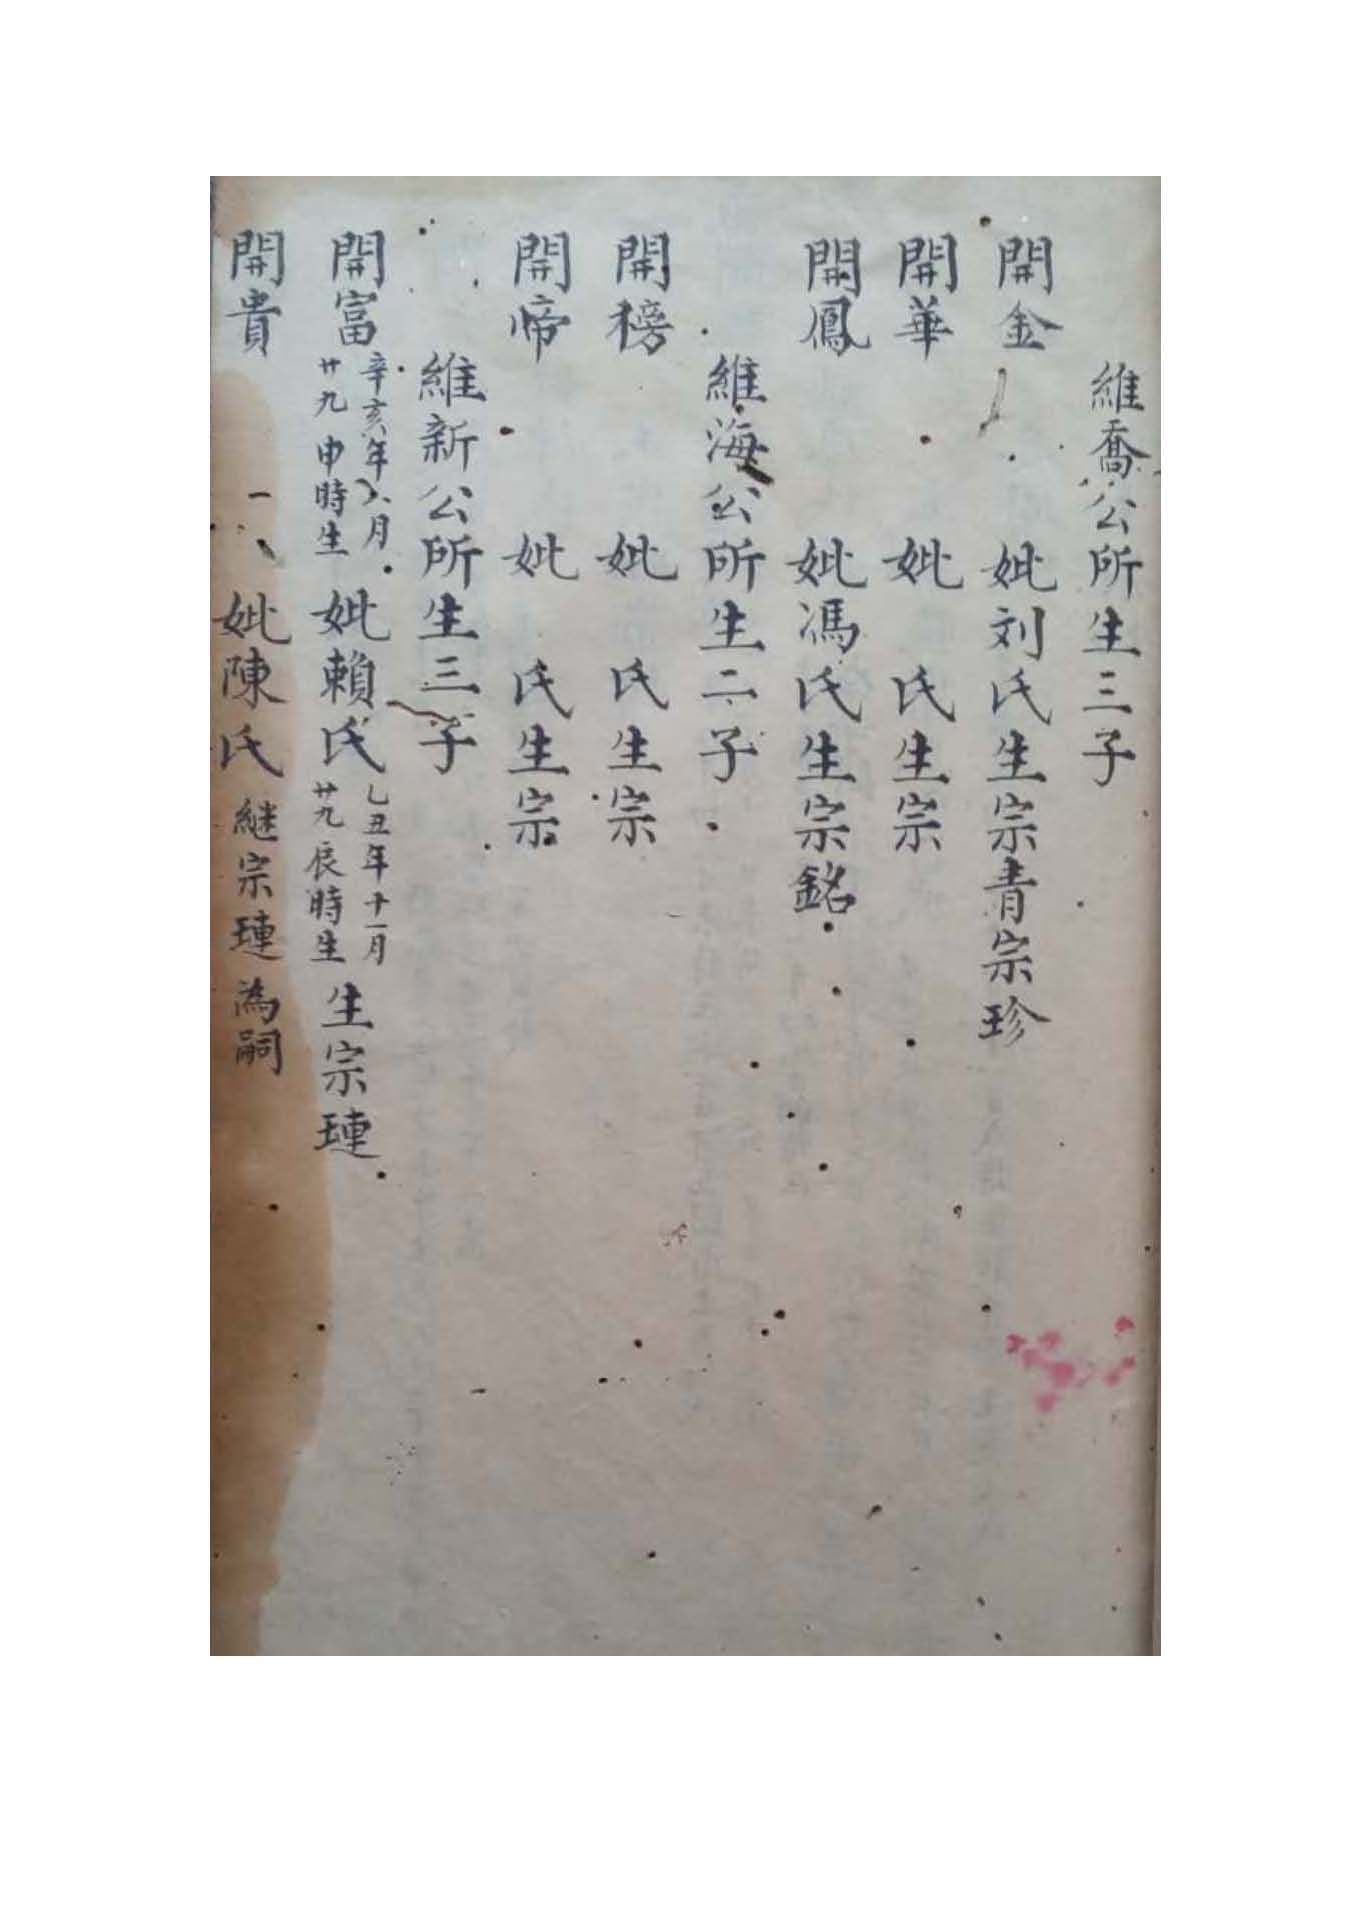 維喬公所生三子
開金 妣刘氏生宗青宗珍
開華 妣 氏生宗
開鳳 妣馮氏生宗銘
維海公所生二子
開榜 妣 氏生宗
開啼 妣 氏生宗
維新公所生三子
開富 辛亥年八月廿九申時生 妣賴氏 乙丑年十一月廿九辰時生 生宗璉
開貴 妣陳氏 継宗璉為嗣